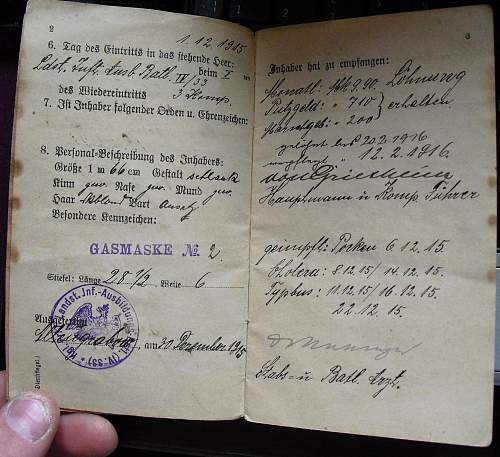 2
1.12.1915
6. Tag des Eintritts in das stehende Heer:
Landst. Inft. Ausb. Batl. IV/33 beim X
des Wiedereintritts 3 Komp.
7. Ist Inhaber folgender Orden u. Ehrenzeichen:
8. Personal-Beschreibung des Inhabers:
Größe 1 m 66 cm Gestalt schlank
Kinn gew. Nase gew. Mund gew.
Haar Bart Ansatz
Besondere Kennzeichen:
GASMASKE № 2
Stiefel: Länge 28 1/2 Weite 6
Landst. Inf.-Ausbildungs (IV. 33)
Ausgefertigt
, am 30 Dezember 1915
(Dienstsiegel.)
3
Inhaber hat zu empfangen:
Monatl: Mk 9.90 Löhnung
Putzgeld: " 7 10 erhalten
" 200
gelöhnt bis 20.2.1916
12.2.1916.
von Griesheim
Hauptmann u Komp. Führer
geimpft: Pocken 6.12.15.
Cholera: 8.12.15/ 14.12.15.
Typhus: 11.12.15/ 16.12.15.
22.12.15.
Stabs- u Batl. Arzt.